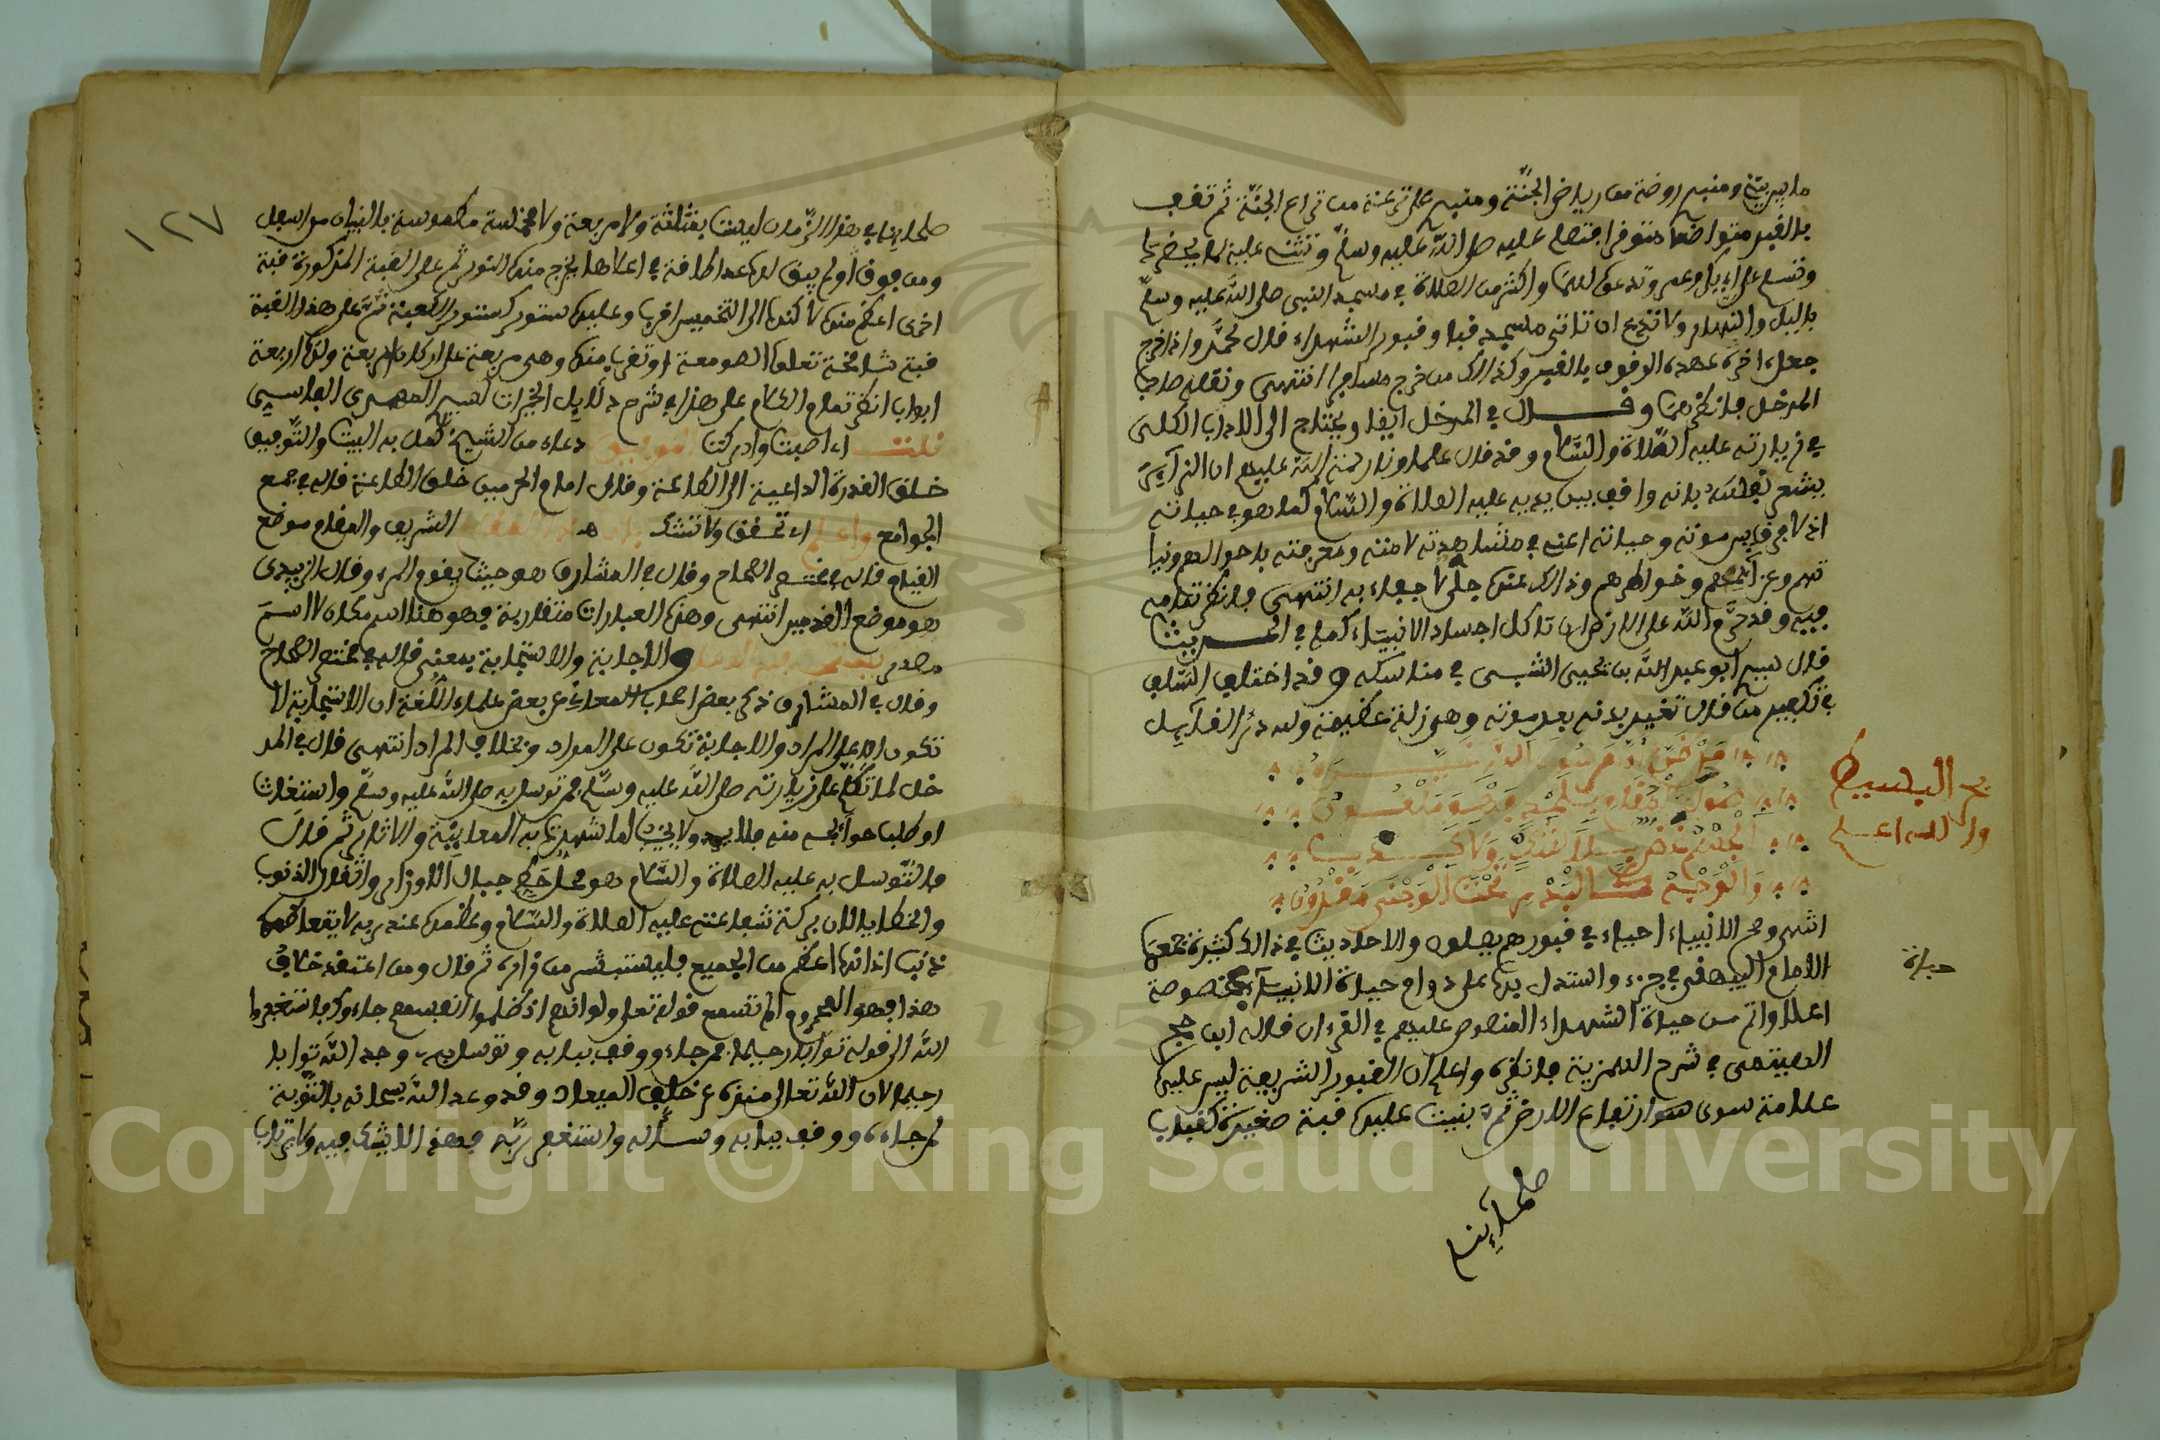 ما بين بيتي ومنبري روضة من رياض الجنّة ومنبري على ترعة من ترع الجنّة ثم تقف
بالقبر متواضعا متوقرا فتصلي عليه صلى الله عليه وسلم وتثني عليه بما يحضرك
وتسلم على أبي بكر وعمر وتدعو لهما وأكثر من الصلاة في مسجد النبي صلى الله عليه وسلم
بالليل والنهار ولا تدع ان تاتي مسجد قبا وقبور الشهداء قال محمد واذا خرج
جعل اخر عهده الوقوف بالقبر وكذلك من خرج مسافرا انتهى ونقله صاحب
المدخل فانظرهما وقال في المدخل ايضا ويحتاج الى الادب الكلي
في زيارته عليه الصّلاة والسّلام وقد قال علماونا رحمة الله عليهم ان الزآير
يشعر نفسه بانه واقف بين يديه عليه الصلاة والسّلام كما هو في حياته
اذ لا فرق بين موته وحياته اعني في مشاهدته لامته ومعرفته باحوالهم ونيا
تهم وعزآئمهم وخواطرهم وذالك عنده جلي لا خفاء به انتهى فانظر تمامه
فيه وقد حرّم الله على الارض ان تاكل اجساد الانبياء كما في الحديث
قال سيدي ابو عبد الله بن يحيى الشبي في مناسكه وقد اختلف السّلف
في تكفير من قال تغير بدنه بعد موته وهي زلة عظيمة ولله در القآيل
بحر البسيط
والله اعلم
انتهى وصح الانبياء احياء في قبورهم يصلون والاحاديث في ذالك كثيرة جمعها
حياة
الامام البيهقي في جزء واستدل بها على دوام حياة الانبيآء مخصوصة
اعلا واتم من حياة الشهداء المنصوص عليهم في القرءان قاله ابن حجر
الهيتمي في شرح الهمزية فانظره واعلم ان القبور الشريفة ليس عليها
علامة سوى هو ارتفاع الارض ثمّ بنيت عليها قبة صغيرة كقباب
صلحآينا
١٢٧
صلحاينا في هذا الزّمان ليست بمثلثة ولا مربعة ولا مخمسة مكموسة بالبنيان من اسفل
ومن فوق او لم يبق لها عدا طاقة في اعلاها يخرج منها النور ثم على القبة المذكورة قبة
اخرى اعظم منها لاكنها الى التخميس اقرب وعليها ستور كستور الكعبة ثمّ على هذه القبة
قبة شامخة تعلو الصومعة او تقرب منها وهي مربعة على اركان اربعة ولها اربعة
ابواب انظر تمام الكلام على هذا في شرح دلآيل الخيرات لسيدي المهدي الفاسي
قلت اي اصبت وادركت دعاء من الشيخ لمن كمل به البيت والتّوفيق
خلق القدرة الداعية الى الطاعة وقال امام الحرمين خلق الطاعة قاله في جمع
الجوامع واعلم اي تحقق ولا تشك بان هذا المقام الشريف والمقام موضع
القيام قاله في مختصر الصحاح وقال في المشارق هو حيث يقوم المرء وقال الزبيدي
هو موضع القدمين انتهى وهذه العبارات متقاربة فهو هنا اسم مكان لا اسم
مصدر والاجابة والاستجابة بمعنى قاله في مختصر الصحاح
وقال في المشارق ذكر بعض اصحاب المعاني عن بعض علماء اللّغة ان الاستجابة لا
تكون الا على المراد والاجابة تكون على المراد وبخلاف المراد انتهى قال في المد
خل لما تكلّم على زيارته صلى الله عليه وسلّم فمن توسل به صلى الله عليه وسلّم واستغاث به
او طلب حوآئجه منه فلا يرد ولا يخيب لما شهدت به المعاينة والاثار ثم قال
فالتّوسل به عليه الصلاة والسّلام هو محل حطّ جبال الاوزار واثقال الذنوب
والخطايا لان بركة شفاعته عليه الصلاة والسّلام وعظمها عند ربه لا يتعاظمها
ذنب اذ انها اعظم من الجميع فليستبشر من زاره ثم قال ومن اعتقد خلاف
هذا فهو المحروم الم تسمع قوله تعلى ولو انهم اذ ظلموا انفسهم جاءوك فاستغفروا
الله الى قوله توّابا رحيما فمن جاءه ووقف ببابه وتوسل به وجد الله توابا
رحيما لان الله تعالى منزه عن خلف الميعاد وقد وعد الله سبحانه بالتّوبة
لمن جاءه ووقف ببابه وساله واستغفر ربّه فهذا لا يشك فيه ولا يرتاب